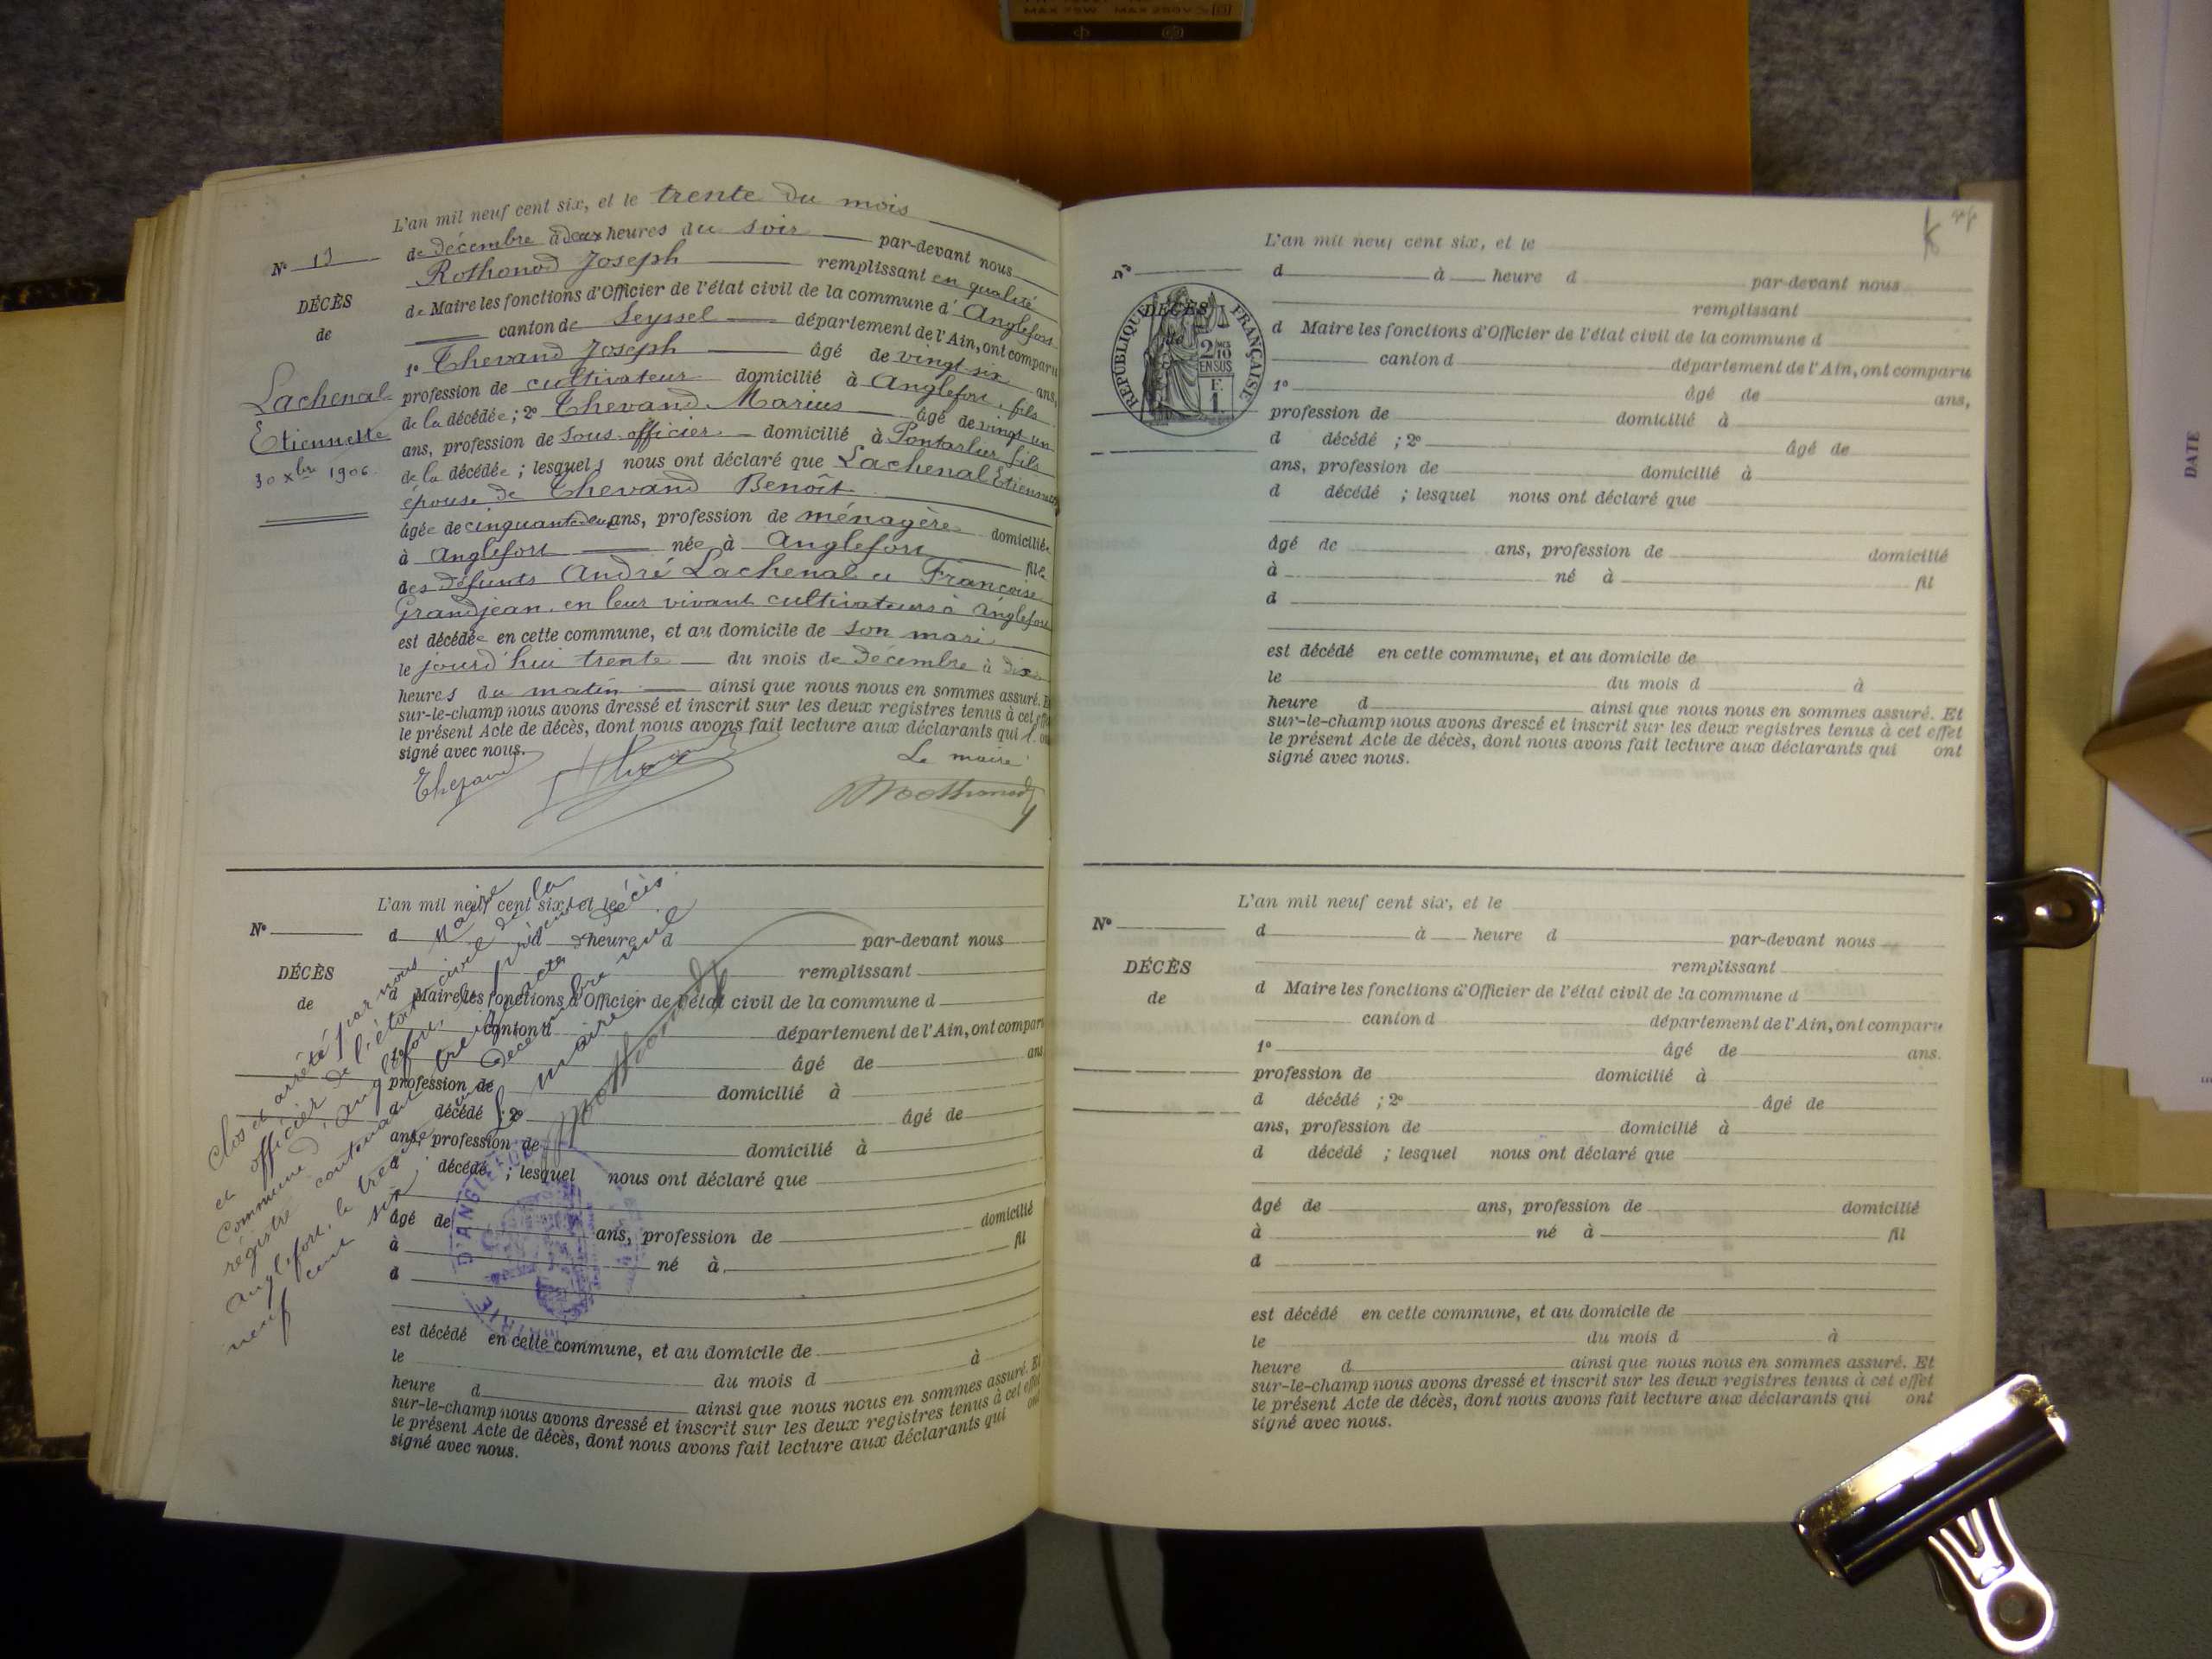 MAX 75W MAX 250V
L'an mil neuf cent six, et le trente du mois
de décembre à deux heures du soir par-devant nous
Rothonod Joseph remplissant en qualité
de Maire les fonctions d'Officier de l'état civil de la commune d'Anglefort
canton de Seyssel département de l'Ain, ont comparu
1º Thevand Joseph âgé de vingt six ans,
profession de cultivateur domicilié à Anglefort, fils
de la décédée ; 2º Thevand Marius âgé de vingt un
ans, profession de Sous-officier domicilié à Pontarlier fils
de la décédée ; lesquels nous ont déclaré que Lachenal Etiennette
épouse de Thevand Benoît
âgée de cinquante deux ans, profession de ménagère domiciliée
à Anglefort née à Anglefort fille
des défunts André Lachenal et Françoise
Grandjean en leur vivant cultivateurs à Anglefort
est décédée en cette commune, et au domicile de son mari
le jourd'hui trente du mois de Décembre à dix
heures du matin ainsi que nous nous en sommes assuré. Et
sur-le-champ nous avons dressé et inscrit sur les deux registres tenus à cet effet
le présent Acte de décès, dont nous avons fait lecture aux déclarants qui l'ont
signé avec nous.
Le maire
Thevand
Rothonod
Nº 13
DÉCÈS
de
Lachenal
Etiennette
30 xbre 1906
L'an mil neuf cent six, et le
Nº
d à heure d par-devant nous
remplissant
DÉCÈS
de
d Maire les fonctions d'Officier de l'état civil de la commune d
canton d département de l'Ain, ont comparu
âgé de ans
profession de domicilié à
d décédé ; 2º âgé de
ans, profession de domicilié à
d décédé ; lesquel nous ont déclaré que
âgé de ans, profession de domicilié
à né à fil
d
est décédé en cette commune, et au domicile de
le du mois d à
heure d ainsi que nous nous en sommes assuré. Et
sur-le-champ nous avons dressé et inscrit sur les deux registres tenus à cet effet
le présent Acte de décès, dont nous avons fait lecture aux déclarants qui ont
signé avec nous.
Clos et arrêté par nous Maire
et officier de l'état civil de la
commune d'Anglefort, le présent
régistre contenant treize actes de décès.
Anglefort, le trente un décembre mil
neuf cent six.
Le maire
Rothonod
MAIRIE D'ANGLEFORT
L'an mil neuf cent six, et le
Nº
d à heure d par-devant nous
remplissant
DÉCÈS
de
RÉPUBLIQUE FRANÇAISE
2/10 EN SUS
F. 1
d Maire les fonctions d'Officier de l'état civil de la commune d
canton d département de l'Ain, ont comparu
1º âgé de ans,
profession de domicilié à
d décédé ; 2º âgé de
ans, profession de domicilié à
d décédé ; lesquel nous ont déclaré que
âgé de ans, profession de domicilié
à né à fil
d
est décédé en cette commune, et au domicile de
le du mois d à
heure d ainsi que nous nous en sommes assuré. Et
sur-le-champ nous avons dressé et inscrit sur les deux registres tenus à cet effet
le présent Acte de décès, dont nous avons fait lecture aux déclarants qui ont
signé avec nous.
L'an mil neuf cent six, et le
Nº
d à heure d par-devant nous
remplissant
DÉCÈS
de
d Maire les fonctions d'Officier de l'état civil de la commune d
canton d département de l'Ain, ont comparu
1º âgé de ans.
profession de domicilié à
d décédé ; 2º âgé de
ans, profession de domicilié à
d décédé ; lesquel nous ont déclaré que
âgé de ans, profession de domicilié
à né à fil
d
est décédé en cette commune, et au domicile de
le du mois d à
heure d ainsi que nous nous en sommes assuré. Et
sur-le-champ nous avons dressé et inscrit sur les deux registres tenus à cet effet
le présent Acte de décès, dont nous avons fait lecture aux déclarants qui ont
signé avec nous.
DATE